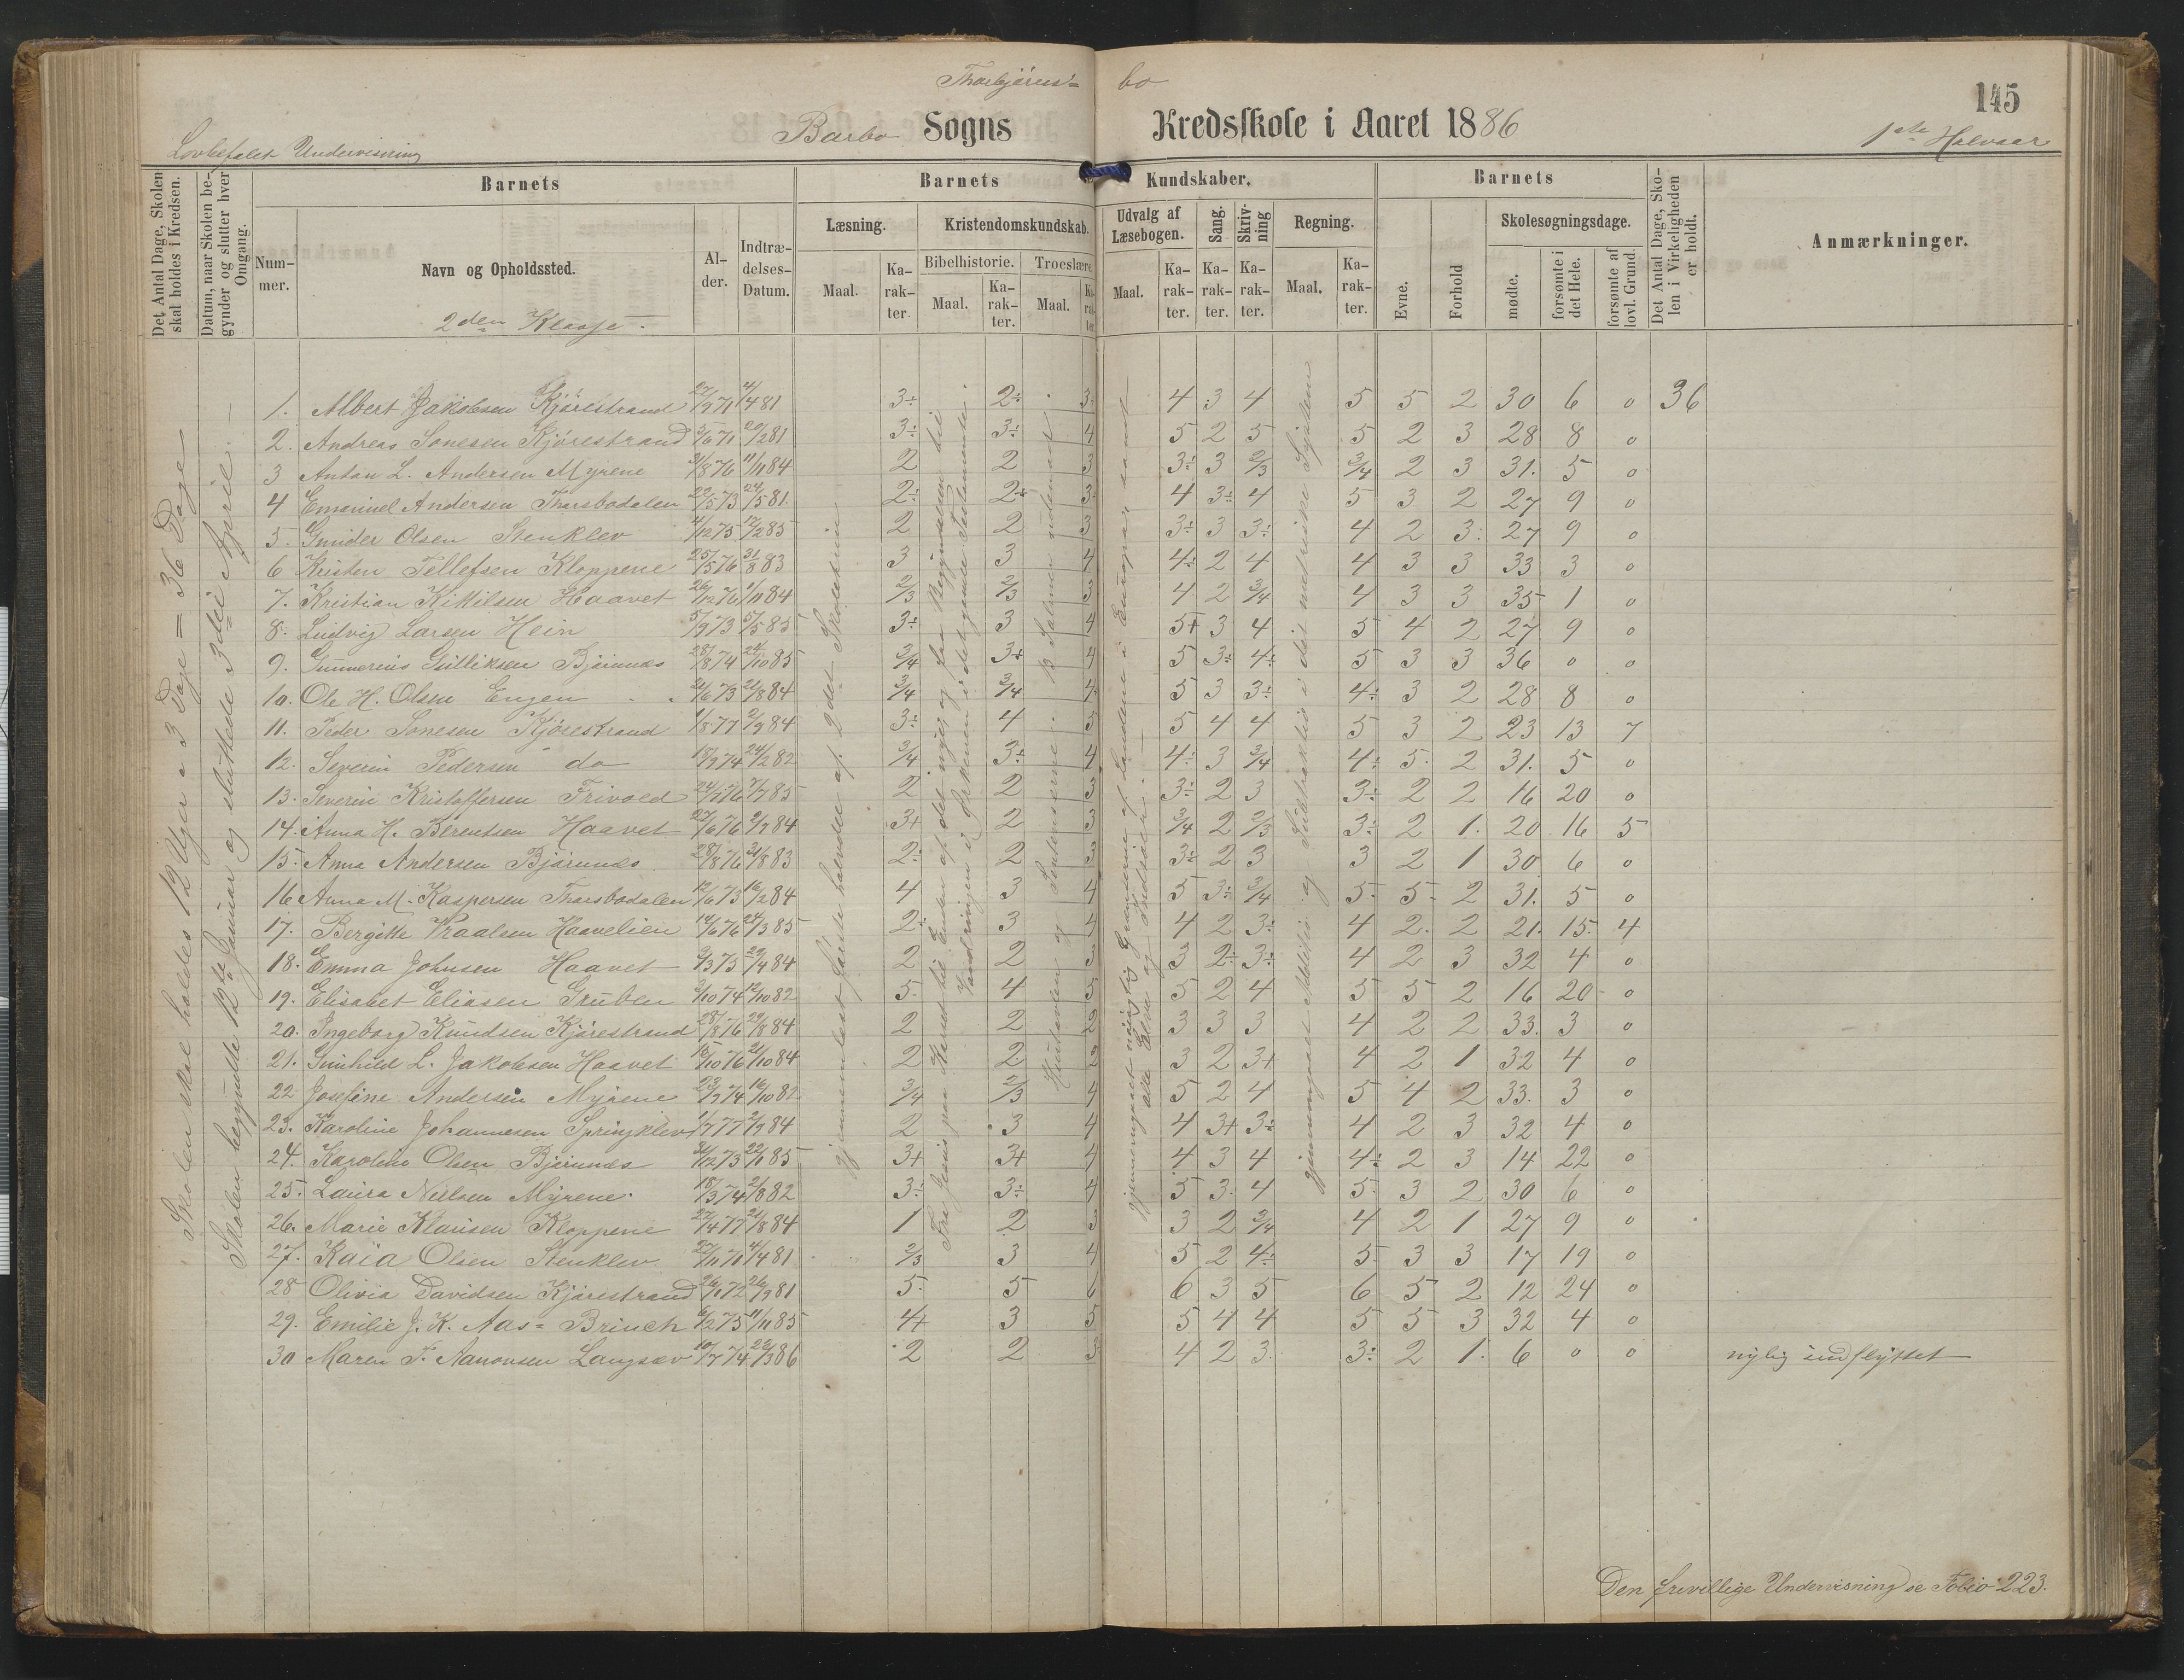 Thorbjörns= bo
145
Lovbefalet Undervisning Barbo Sogns Kredsskole i Aaret 1886 1ste Halvaar
Det Antal Dage, Skolen skal holdes i Kredsen.
Datum, naar Skolen begynder og slutter hver Omgang.
Barnets Barnets Kundskaber. Barnets
Nummer. Navn og Opholdssted. Alder. Indtrædelses-Datum. Læsning. Kristendomskundskab. Udvalg af Læsebogen. Sang. Skrivning Regning. Evne. Forhold Skolesøgningsdage. Det Antal Dage, Skolen i Virkeligheden er holdt. Anmærkninger.
Bibelhistorie. Troeslære.
Maal. Karakter. Maal. Karakter. Maal. Karakter. Maal. Karakter. Karakter. Karakter. Maal. Karakter. mødte. forsømte i det Hele. forsømte af lovl. Grund.
2den Klasse.
Skolen skal holdes 12 Uger a 3 Dage = 36 Dage
Skolen begyndte 12te Januar og sluttede 3die April.
1. Albert Jakobsen Kjörestrand 27/9 71 4/4 81 3÷ 2÷ 3÷ 4 3 4 5 5 2 30 6 0 36
2. Andreas Sonesen Kjörestrand 3/6 71 20/2 81 3÷ 3÷ 4 5 2 5 5 2 3 28 8 0
3 Anton L. Andersen Myrene 31/8 76 11/11 84 2 2 3 3÷ 3 2/3 3/4 2 3 31. 5 0
4 Emanuel Andersen Thorsbodalen 22/5 73 24/5 81 2÷ 2÷ 3÷ 4 3÷ 4 5 3 2 27 9 0
5. Gunder Olsen Stenklev 4/12 75 17/2 85 2 2 3 3÷ 3 3÷ 4 2 3 27 9 0
6 Kristen Tellefsen Kloppene 25/5 76 31/8 83 3 3 4 4÷ 2 4 4 3 3 33 3 0
7. Kristian Kittilsen Haavet 26/12 76 1/11 84 2/3 2/3 3 4 2 3/4 4 3 3 35 1 0
8. Ludvig Larsen Hein 5/9 73 5/5 85 3÷ 3 4 5+ 3 4 5 4 2 27 9 0
9. Gunnerius Gulliksen Bjórnnes 28/8 74 24/10 85 3/4 3+ 4 5 3÷ 4÷ 5 3 3 36 0 0
10. Ole H. Olsen Engen 21/6 73 21/8 84 3/4 3/4 4 5 3 3÷ 4÷ 3 2 28 8 0
11. Peder Sonesen Kjörestrand 1/8 77 2/9 84 3÷ 4 5 5 4 4 5 3 2 23 13 7
12. Severin Pedersen do 18/9 74 24/2 82 3/4 3÷ 4 4÷ 3 3/4 4÷ 5 2 31. 5 0
13. Severin Kristoffersen Frivold 24/7 76 7/7 85 2 2 3 3÷ 2 3 3÷ 2 2 16 20 0
14. Anna H. Berentsen Haavet 27/6 76 2/9 84 3+ 2 3 3/4 2 2/3 3÷ 2 1. 20 16 5
15. Anna Andersen Bjórnnes 28/8 76 31/8 83 2÷ 2 3 3÷ 2 3 3 2 1 30 6 0
16 Anna M. Kaspersen Thorsbodalen 12/6 73 16/2 84 4 3 4 5 3÷ 3/4 5 5 2 31. 5 0
17. Bergitte Vraalsen Haavelien 14/6 76 24/3 85 2÷ 3 4 4 2 3÷ 4 2 2 21. 15 4
18. Emma Johnsen Haavet 9/3 73 29/4 84 2 2 3 3 2÷ 3÷ 4 2 3 32 4 0
19. Elisabet Eliasen Gruben 3/10 74 12/10 82 5 4 5 5 2 4 5 5 2 16 20 0
20. Ingeborg Knudsen Kjörestrand 28/8 76 29/8 84 2 2 2 3 3 3 4 2 2 33. 3 0
21. Gunhild L. Jakobsen Haavet 15/10 76 21/10 84 2 2 2 3 2 3+ 4 2 1 32 4 0
22 Josefine Andersen Myrene 23/9 74 16/10 82 3/4 2/3 4 5 2 4 5 4 2 33. 3 0
23. Karoline Johannesen Springklev 1/7 77 2/9 84 2 3 4 4 3+ 3÷ 4 2 3 32 4 0
24. Karoline Olsen Bjórnnes 31/12 73 22/1 85 3+ 3+ 4 4 3 4 4÷ 2 3 14 22 0
25. Laura Nielsen Myrene 18/3 74 2/8 82 3÷ 3÷ 4 5 3 4 5 3 2 30 6 0
26. Marie Klausen Kloppene 27/4 77 21/8 84 1 2 3 3 2 3/4 4 2 1 27 9 0
27. Kaia Olsen Stenklev 27/11 70 4/4 81 2/3 3 4 5 2 4÷ 5 3 3 17 19 0
28 Olivia Davidsen Kjörestrand 26/1 72 26/9 81 5 5 6 6 3 5 6 5 2 12 24 0
29. Emilie J. K. Aas= Brinch 6/2 75 11/11 85 4+ 3 5 5 4 4 5 5 3 32 4 0
30 Maren T. Aanonsen Langsæv 10/7 74 22/3 86 2 2 3 4 2 3 3÷ 2 1. 6 0 0 nylig indflyttet
gjennemlæst første halvdel af 2det Skoletrin
Fra Jesus paa Korset til Enden af det nye, og fra Begyndelsen til Vandringen i Ørkenen i det gamle Testamente.
gjennemgaaet nøiagtig Grændserne af Landene i Europa, samt alle Elve og Indsöer.
gjennemgaaet Addition og Subtraktion i det metriske System
Den frivillige Undervisning se Folio 223.